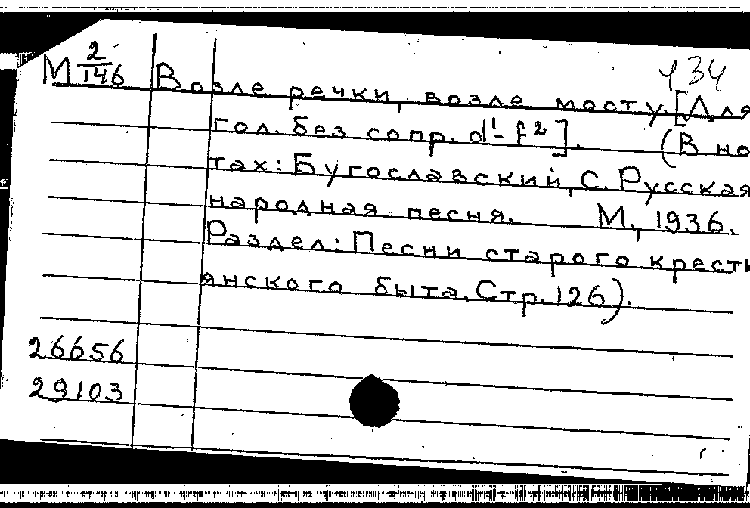 434
М 2/146 Возле речки, возле мосту. [Для
гол. без сопр. d¹-f²]. (В но
тах: Бугославский, С. Русская
народная песня. М., 1936.
Раздел: Песни старого кресть
янского быта. Стр. 126).
26656
29103